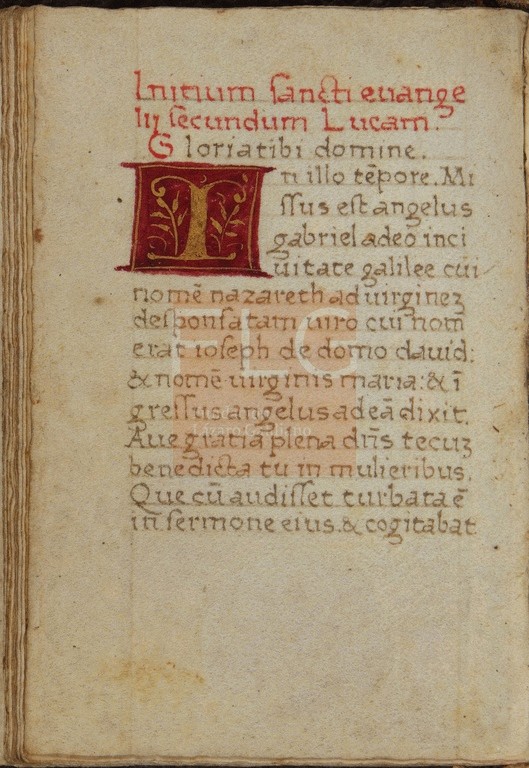 Initium sancti euange
lij secundum Lucam.
Gloria tibi domine.
In illo tẽpore. Mi
ssus est angelus
gabriel a deo in ci
uitate galilee cui
nomẽ nazareth ad uirginez
desponsatam uiro cui nom̃
erat ioseph de domo dauid:
& nomẽ uirginis maria: & ĩ
gressus angelus ad eã dixit.
Aue gratia plena dñs tecuz
benedicta tu in mulieribus.
Que cũ audisset turbata ẽ
in sermone eius. & cogitabat
FLG
Lázaro Galdiano